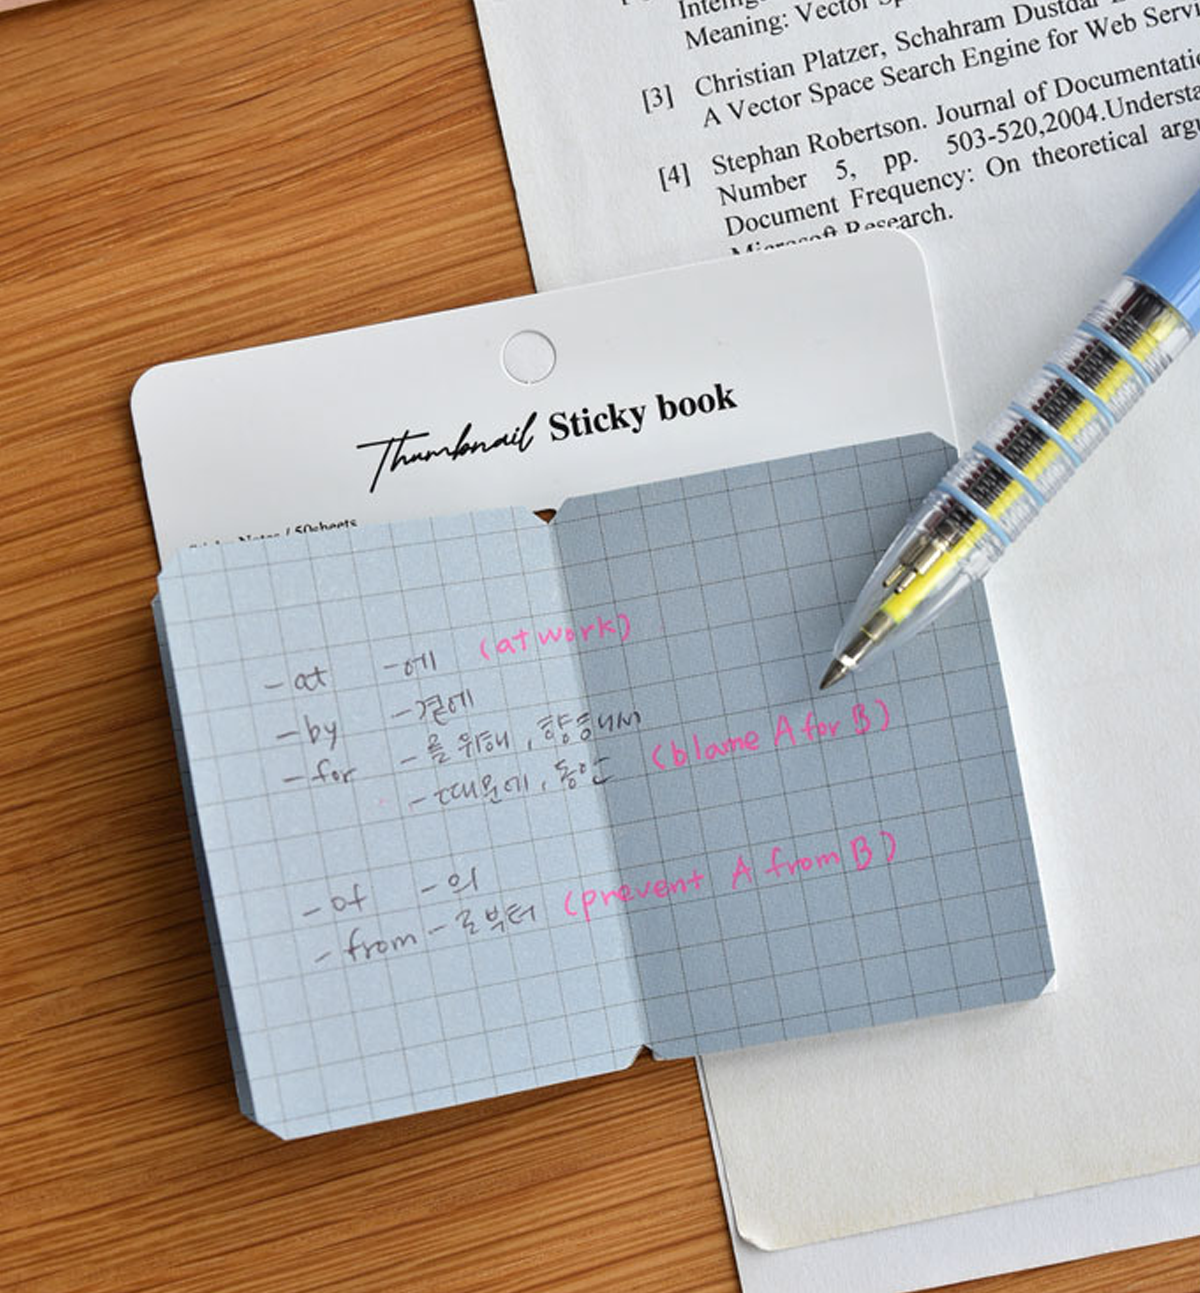 Meaning: Vector
[3] Christian Platzer, Schahram Dustdar
A Vector Space Search Engine for Web Servi
[4] Stephan Robertson. Journal of Documentatio
Number 5, pp. 503-520,2004.Understa
Document Frequency: On theoretical argu
Microsoft Research.
Thumbnail Sticky book
Sticky Notes / 50sheets
-at -에 (at work)
-by -곁에
-for -를 위해, 향해서
-때문에, 동안 (blame A for B)
-of -의
-from -로부터 (prevent A from B)